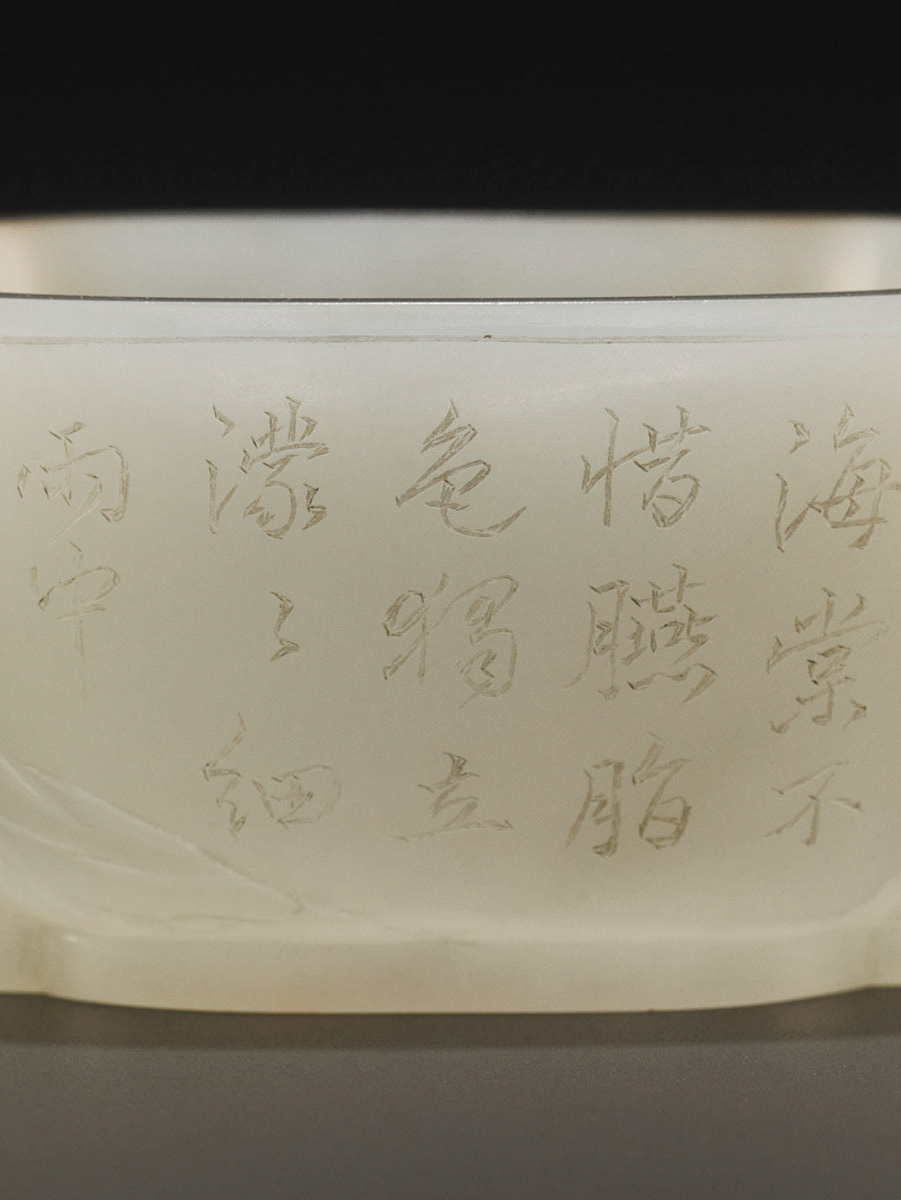 海棠不
惜臙脂
色獨立
濛〻細
雨中